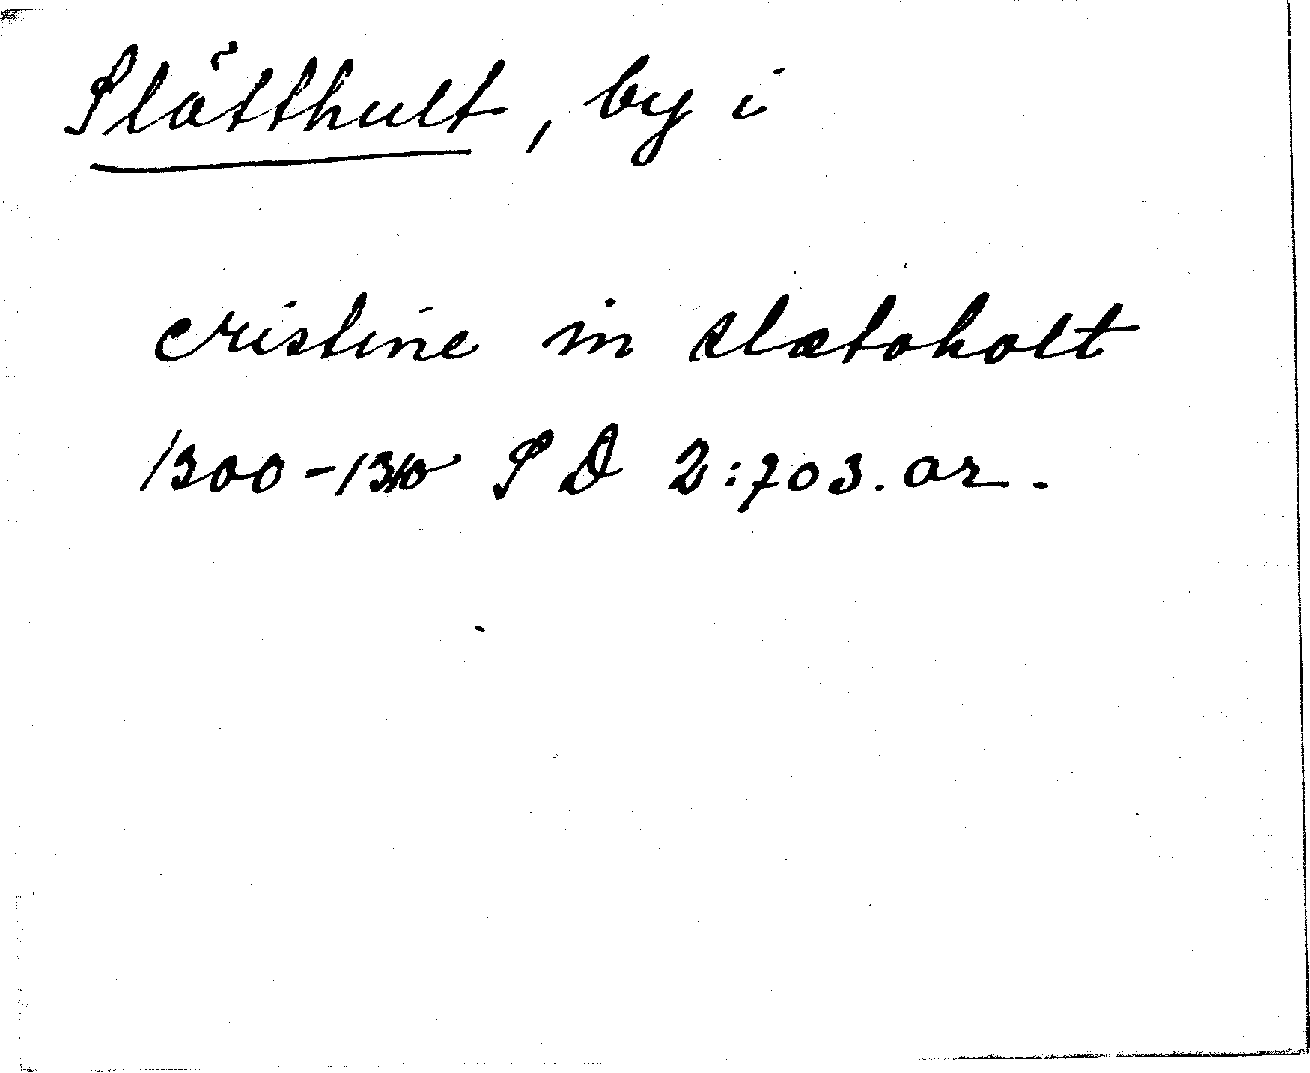 Slätthult, by i
cristine in slætaholt
1300-1310 SD 2:703. or.